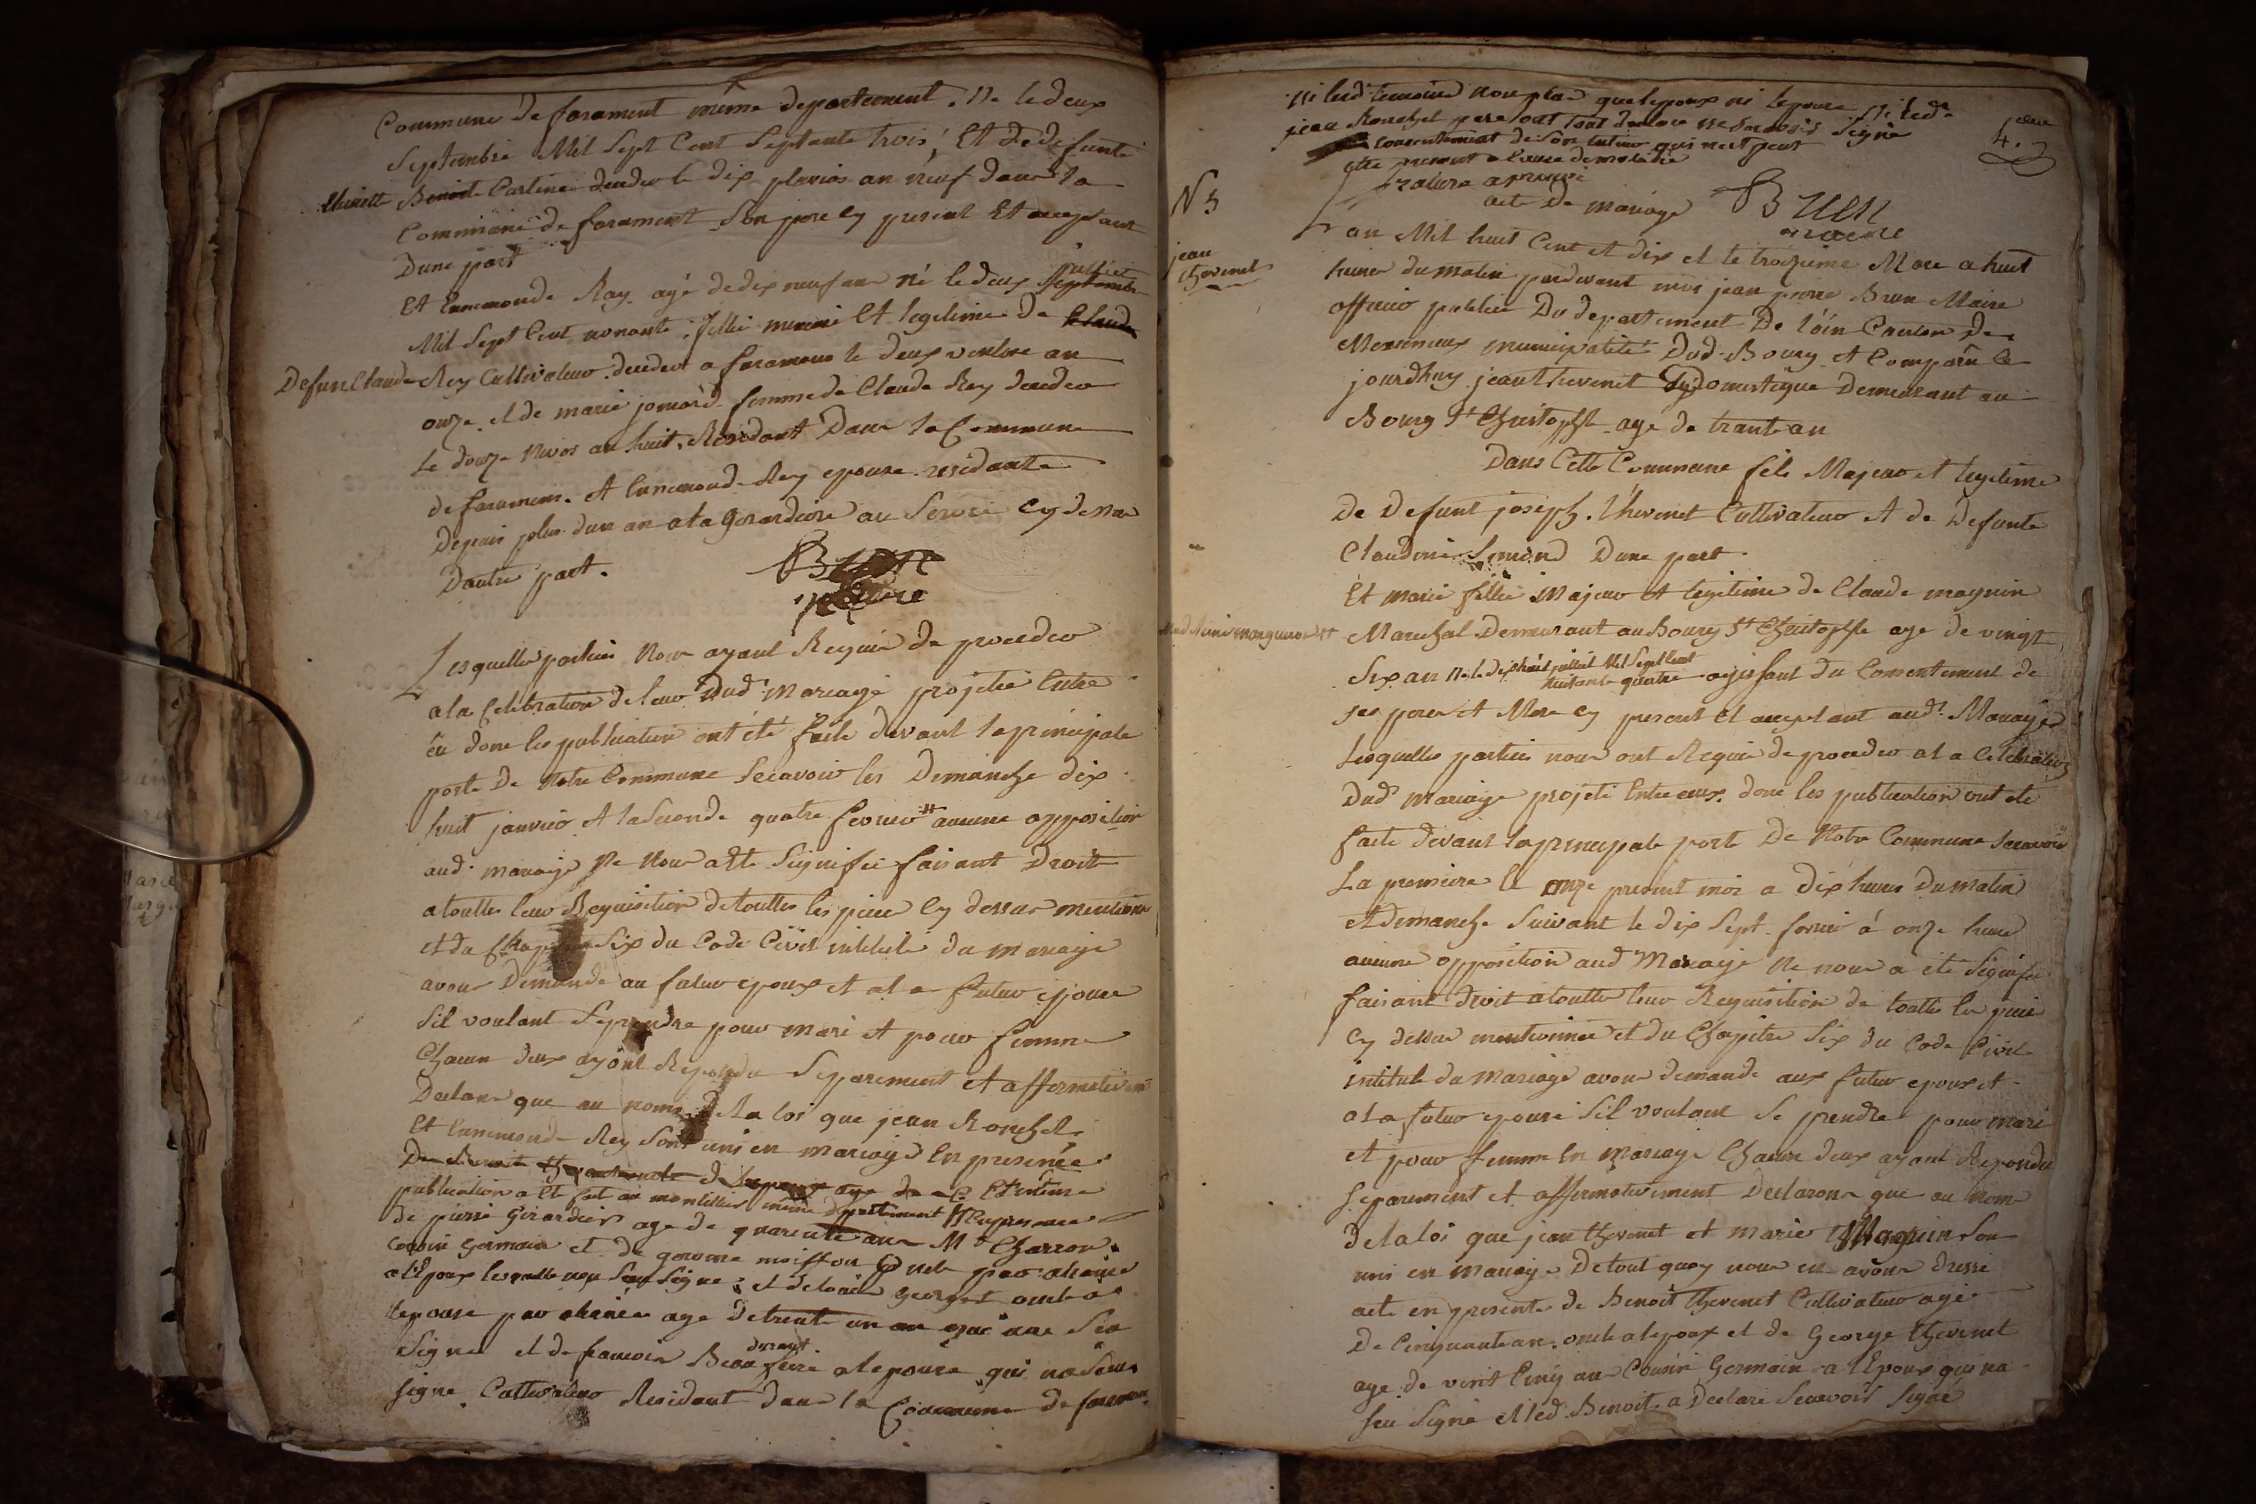 Commune de faramant même departement. Ne le deux
Septembre Mil Sept Cent Septante trois, Et de defunte
Benoit Cartine decedeo le dix pluvios an neuf dans la
Commune de faramant Son pere Cy present Et aceptant
Dune part
Et Enemonde Ray agé de dix neuf ans né le deux Septembre
juillet
Mil Sept Cent nonante, fille mineure Et legitime De Claude
Defun Claude Rey Cultivateuo decedeo a faramans le deux ventose an
onze et de marie jomard femme de Claude Rey decedeo
Le douze Nivos an huit, Residant Dans la Commune
de faramans. et Enemond Rey epouse residante
Depuis plus dun an a la Girardiere au Service Cy devan
Dautre part.
Brun
maire
Lesquelles parties Nous ayant Requis de procedeo
a la Celebration de leur Dud. Mariage projetée Entre
eu dont les publications ont été faite devant la principale
porte De Notre Commune Scavoir les Demanche dix
huit janvieo et la Seconde quatre fevrieo aucune opposition
aud. mariage Ne Nous a été Signifiée faisant Droit
a toutes leur Requisition de touttes les piece Cy dessus mentione
et du Chapitre Six du Code Civil intitulé du Mariage
avons Demande au futur epoux et a la futur epouse
Sil voulant Se prendre pour mari et pour femme
Chacun deux ayant Repondu Separement et affirmativem
Declare que au nom de la loi que jean Ronchet
Et Enemonde Rey Sont uni en mariage En presence
publication a Eté fait au montellier même departement En presence
de pierre Girardier age de quarante ans Md Charron
Cousin Germain et de gerome moiffon oncle par aliance
a l'Epoux lesquelle non Seu Signe; et de louis georget oncle a
lepouse par alience age de trente un an qui ne Seu
Signe et de francois Beau frere a lepouse qui na Seu
Signe. Cultivateuo Residant dans la Commune de faraman
Ni led temoins non plus que lepoux ni lepouse Ni led.
jean Ronchet pere
Consentement de Son tuteur qui nest peut
etre present a Cause de maladie
Rature aprouvé
Brun
maire
4.
N 3
acte De mariage
jean
thevenet
Lan Mil huit Cent et dix et le troizieme Mars a huit
heures du matin pardevant moi jean pierre Brun Maire
officier publicie Du departement De l'ain Canton de
Meximieux municipalité Dud. Bourg et Comparu Ce
jourdhuy jean thevenet Domestique Demeurant au
Bourg St Christophe age de trante an
Dans Cette Commune fils Majeuo et legitime
De Defunt joseph thevenet Cultivateuo et de Defunte
Claudine Simond Dune part
Et Marie fille Majeuo et legitime de Claude magnin
Marechal Demeurant au Bourg St Christophe age de vingt
Six an Ne le dix huit juillet Mil Sept Cent
huitante quatre agissant du Consentement de
Ses peres et Mere Cy presant et aceptant aud. Mariage
Lesquelles parties nous ont Requis de procedeo a la Celebration
Dud mariage projeté Entre eux. dont les publication ont ete
faite devant la principale porte De Notre Commune Scavoir
La premiere le onze present mois a Dix heures Du matin
et Demanche Suivant le dix Sept. fevrié á onze heure
aucune opposition aud Mariage Ne nous a ete Signifie
faisant Droit a toutte leur Requisition de toutte les piece
Cy dessus mentionnee et du Chapitre Six du Code Civil
intitulé du Mariage avons demande aux futur epoux et
a la futur epouse Sil voulant Se prendre pour mari
et pour femme En Mariage Chacun deux ayant Repondu
Separement et affirmativement Declarons que au nom
de la loi que jean thevenet et marie Magnin Son
uni en mariage De tout quoy nous en avons dressé
acte en presente de Benoit thevenet Cultivateuo agé
De Cinquante an. oncle a lepoux et de George thevenet
age de vint Cinq an Cousin Germain a l'Epoux qui na
Seu Signe et led. Benoit a Declare Scavoir Signe